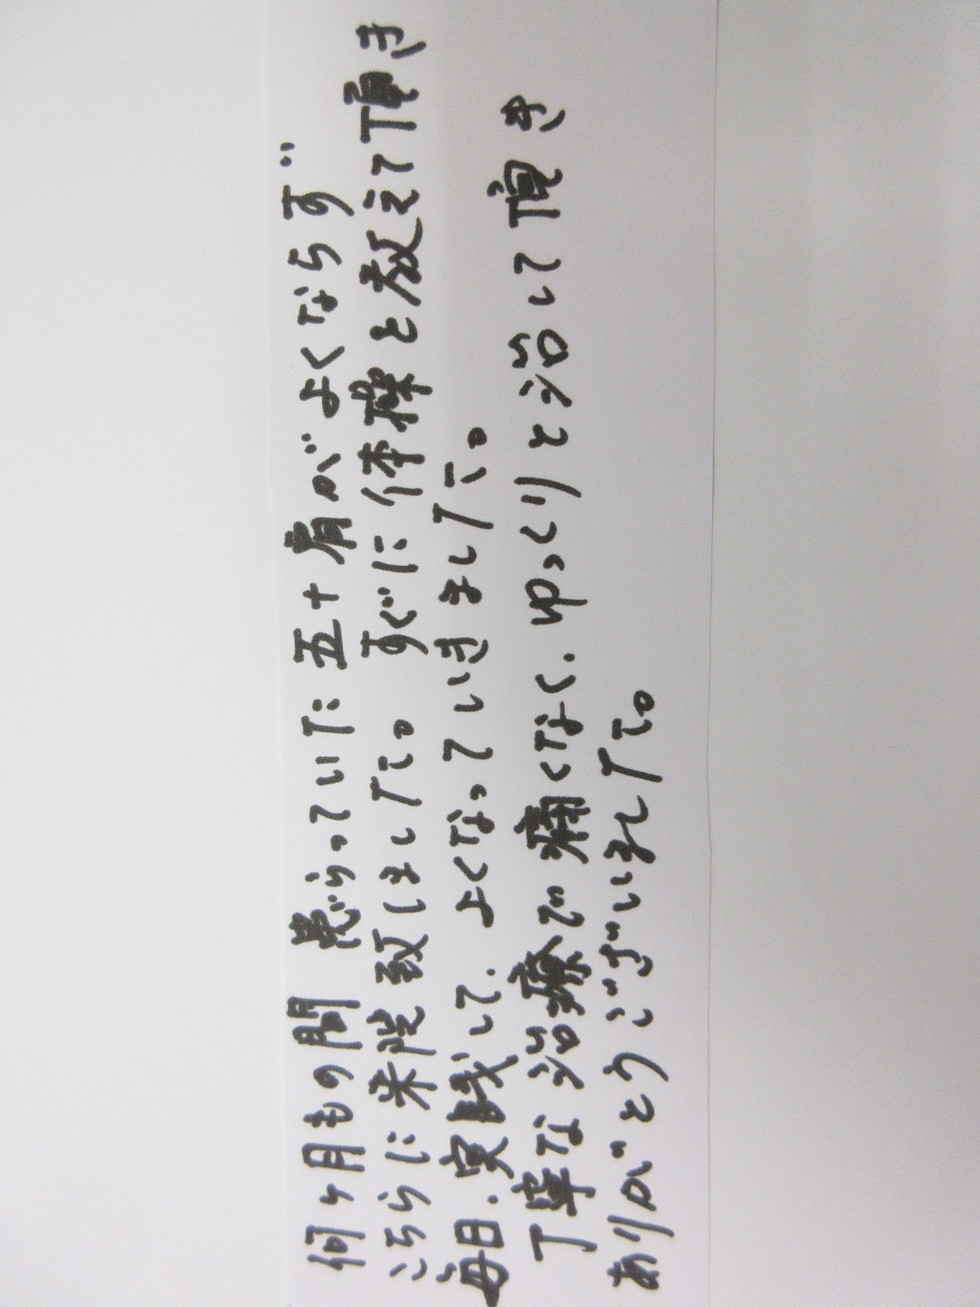 何ヶ月もの間 患らっていた五十肩がよくならず
こちらに来院致しました。すぐに体操と教えて頂き
毎日、実践して、よくなっていきました。
丁寧な治療で痛くなく、ゆっくりと治して頂き
ありがとうございました。